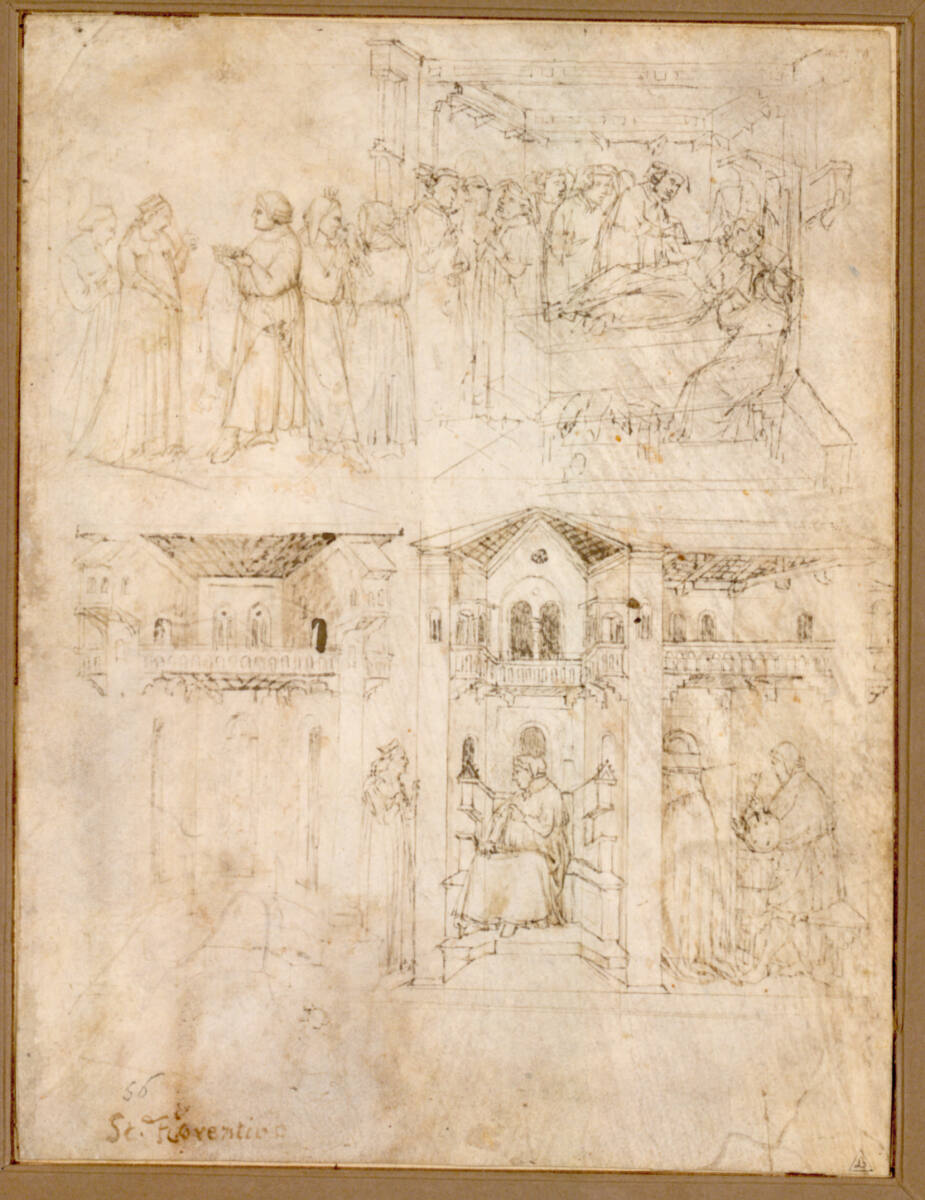 56
St. Fiorentino